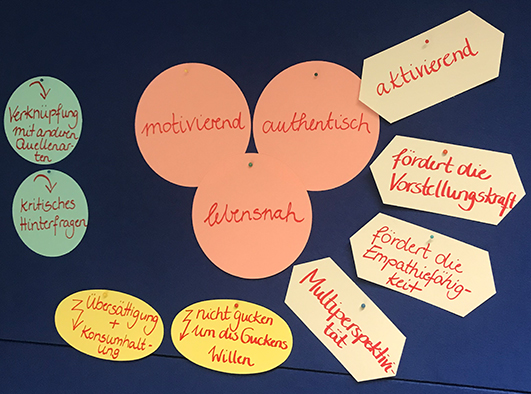 Verknüpfung
mit andren
Quellenar-
ten
kritisches
Hinterfragen
motivierend
authentisch
lebensnah
aktivierend
fördert die
Vorstellungskraft
fördert die
Empathiefähig-
keit
Multiperspektivi-
tät
Übersättigung
+
Konsumhalt-
ung
nicht gucken
um des Guckens
Willen